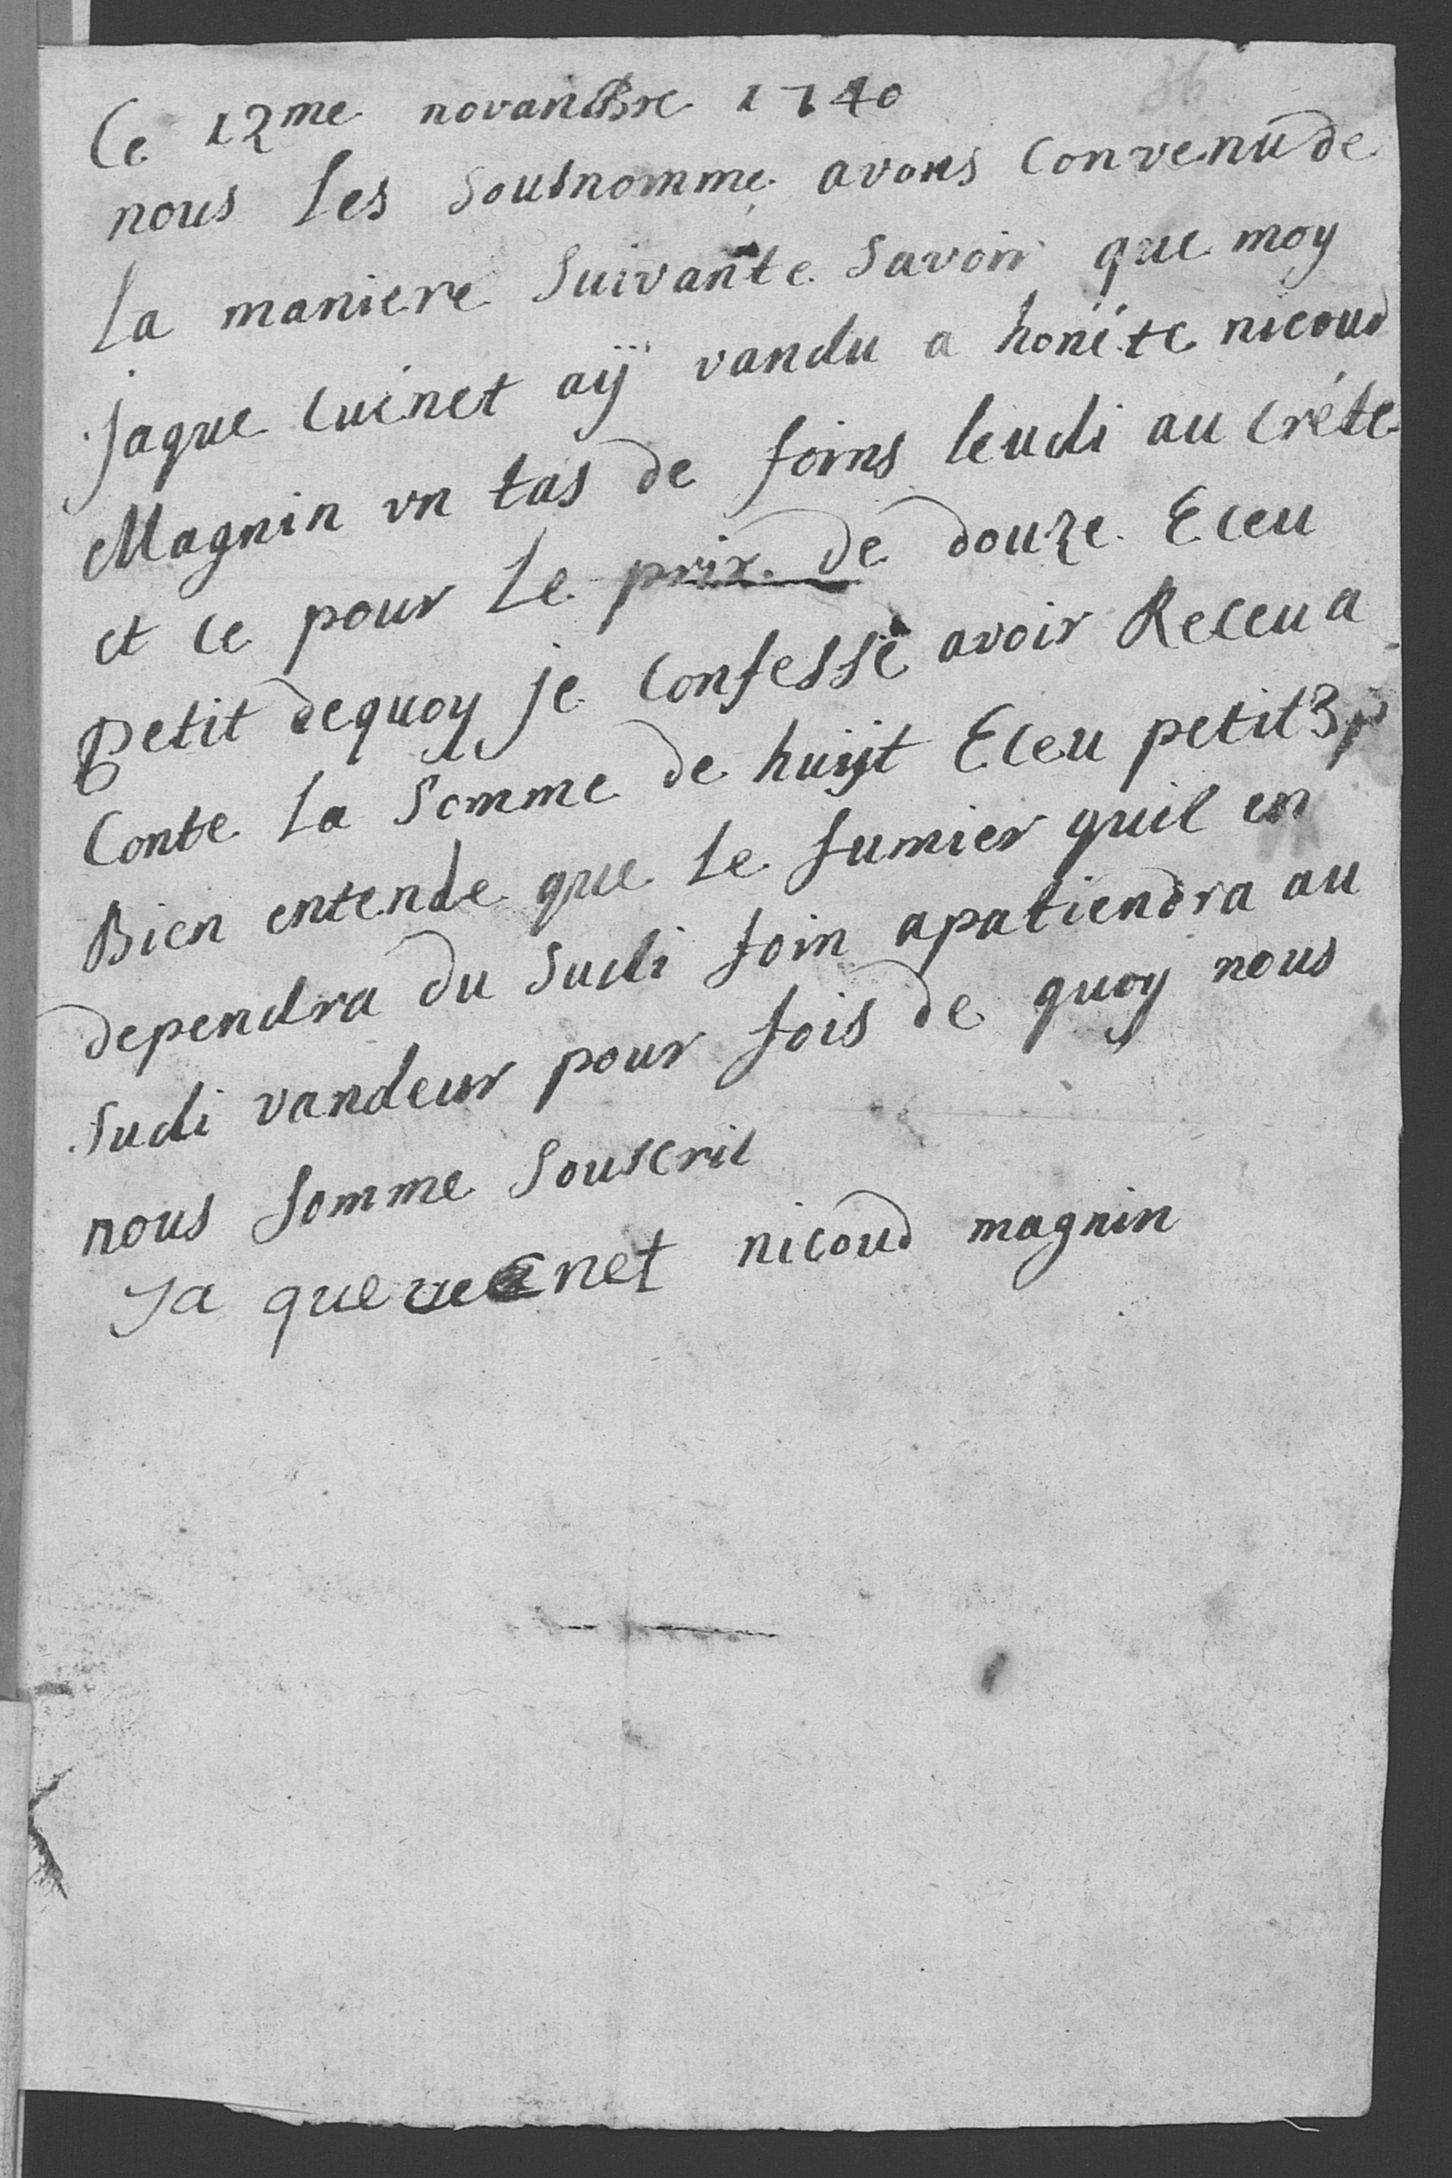 36
Ce 12me novambre 1740
nous les sousnomme avons convenu de
la maniere suivante savoir que moy
jaque cuenet aÿ vandu a honéte nicoud
Magnin un tas de foins leudi au créte
et ce pour le prix de douze Eceu
petit dequoy je confesse avoir Receu a
Conte la somme de huijt Eceu petit
Bien entende que le fumier quil en
dependra du sudi foin apatiendra au
sudi vandeur pour fois de quoy nous
nous somme souscrit
Ja que nicoud magnin